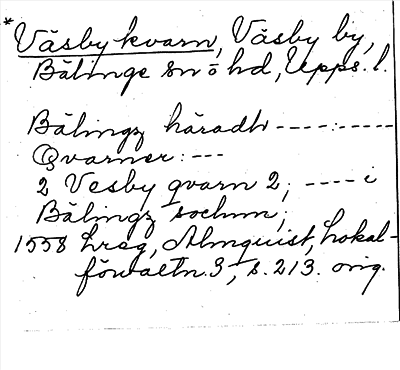 *Väsby kvarn, Väsby by,
Bälinge sn o hd, Upps. l.
Bälingz häradh ----:-----
Qvarner: ---
2 Vesby qvarn 2; ---- i
Bälingz sochnn;
1558 hreg, Almquist, Lokal-
förvaltn. 3, s. 213. orig.